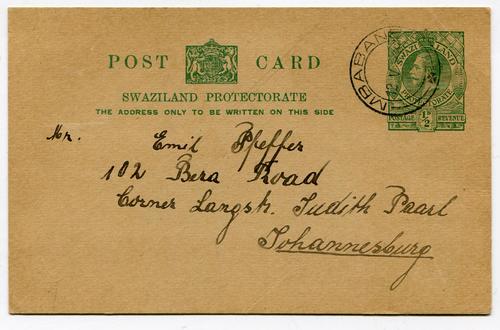 POST CARD
SWAZILAND PROTECTORATE
THE ADDRESS ONLY TO BE WRITTEN ON THIS SIDE
MBABANE
SWAZI LAND
PROTECTORATE
POSTAGE REVENUE
½D
Mr. Emil Pfeffer
102 Bera Road
Corner Langst. Judith Paarl
Johannesburg